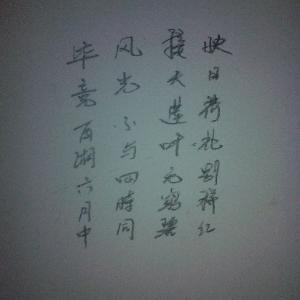 毕竟西湖六月中
风光不与四時同
接天莲叶无窮碧
映日荷花别样红